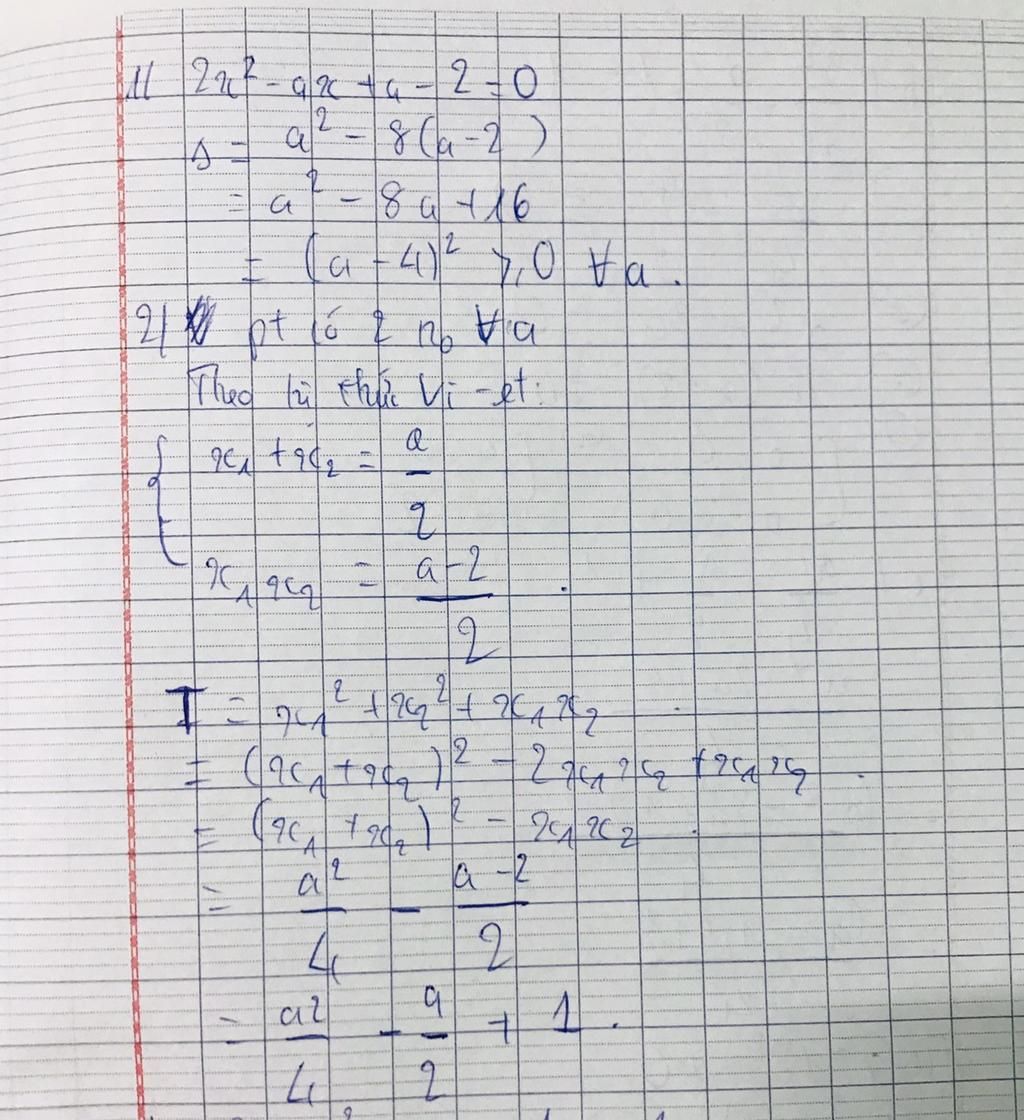 1/ 2x² - ax + a - 2 = 0
Δ = a² - 8(a-2)
= a² - 8a + 16
= (a - 4)² ≥ 0 ∀a.
2/ pt có 2 no ∀a
Theo hệ thức Vi-et:
{ x₁ + x₂ = a/2
x₁x₂ = (a-2)/2 .
I = x₁² + x₂² + x₁x₂
= (x₁ + x₂)² - 2x₁x₂ + x₁x₂ .
= (x₁ + x₂)² - x₁x₂
= a²/4 - (a-2)/2
= a²/4 - a/2 + 1 .